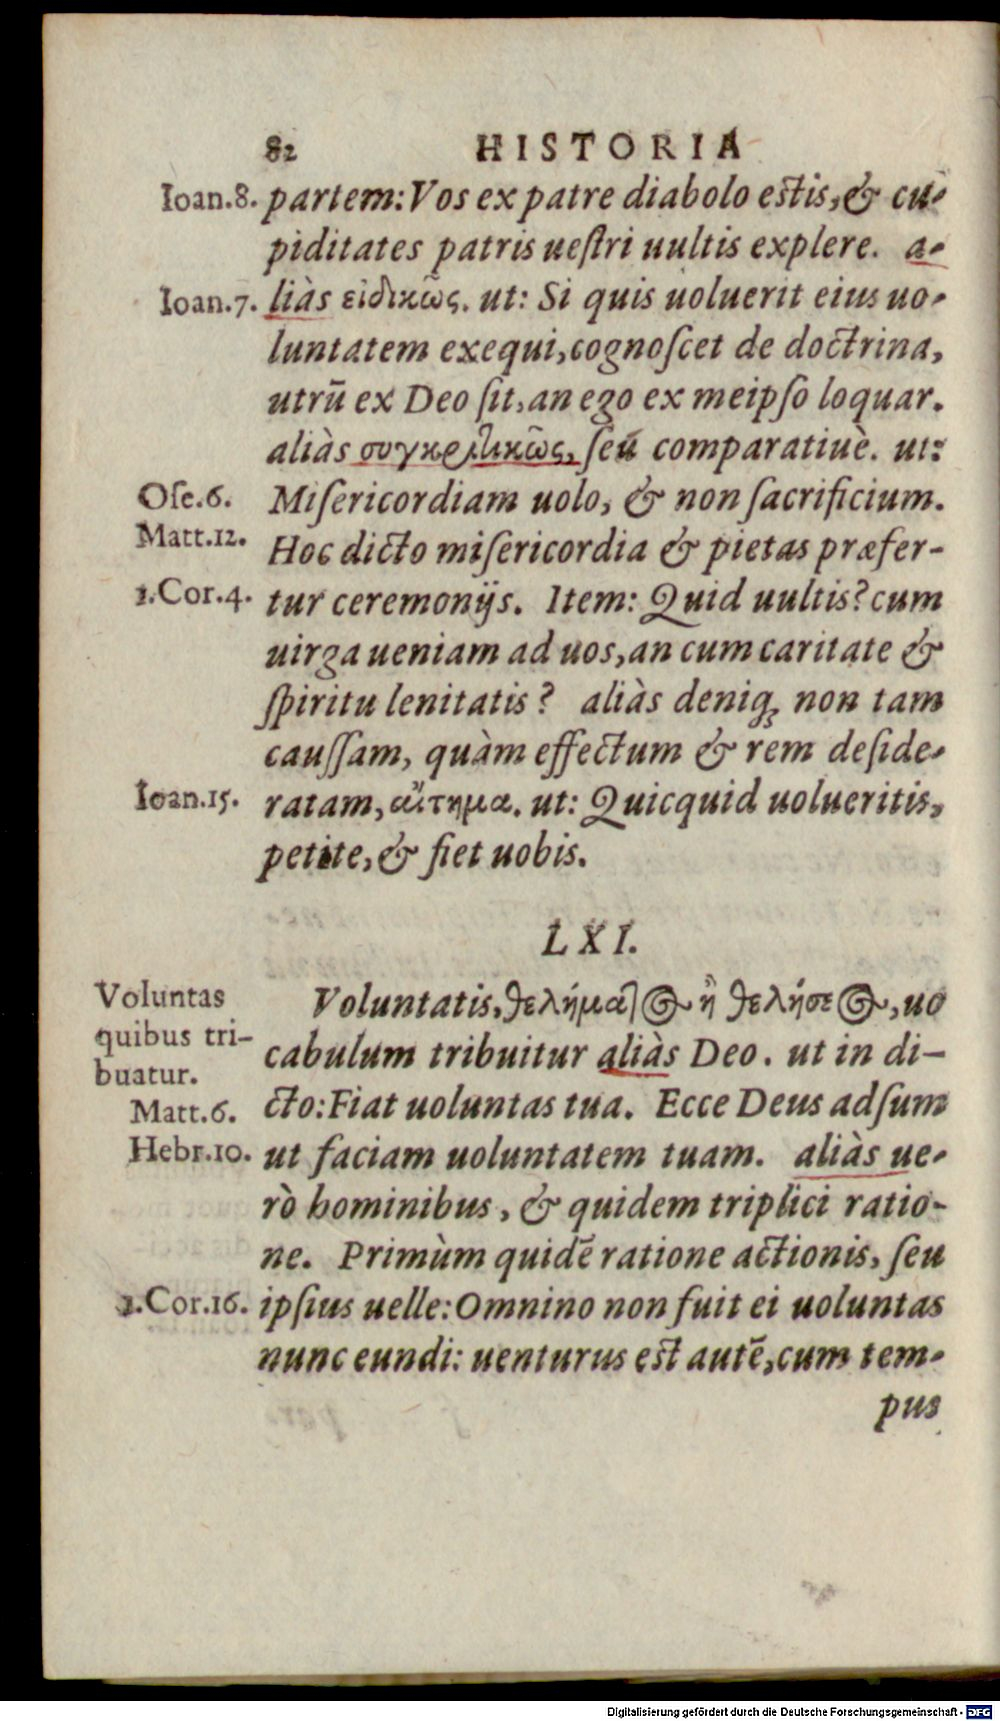 82 HISTORIA
Ioan.8. partem: Vos ex patre diabolo estis, & cu-
piditates patris ueſtri uultis explere. a-
Ioan.7. liàs εἰδικῶς. ut: Si quis uoluerit eius uo-
luntatem exequi, cognoſcet de doctrina,
utrū ex Deo ſit, an ego ex meipſo loquar.
aliàs συγκριτικῶς, ſeu comparatiuè. ut:
Oſe.6. Miſericordiam uolo, & non ſacrificium.
Matt.12. Hoc dicto miſericordia & pietas præfer-
1.Cor.4. tur ceremonijs. Item: Quid uultis? cum
uirga ueniam ad uos, an cum caritate &
ſpiritu lenitatis? aliàs deniq; non tam
cauſſam, quàm effectum & rem deſide-
Ioan.15. ratam, αἴτημα. ut: Quicquid uolueritis,
petite, & fiet uobis.
LXI.
Voluntas quibus tri-
buatur.
Voluntatis, θελήματος ἢ θελήσεως, uo
cabulum tribuitur aliàs Deo. ut in di-
Matt.6. cto: Fiat uoluntas tua. Ecce Deus adſum
Hebr.10. ut faciam uoluntatem tuam. aliàs ue-
rò hominibus, & quidem triplici ratio-
ne. Primùm quidē ratione actionis, ſeu
1.Cor.16. ipſius uelle: Omnino non fuit ei uoluntas
nunc eundi: uenturus est autē, cum tem-
pus
Digitalisierung gefördert durch die Deutsche Forschungsgemeinschaft - DFG